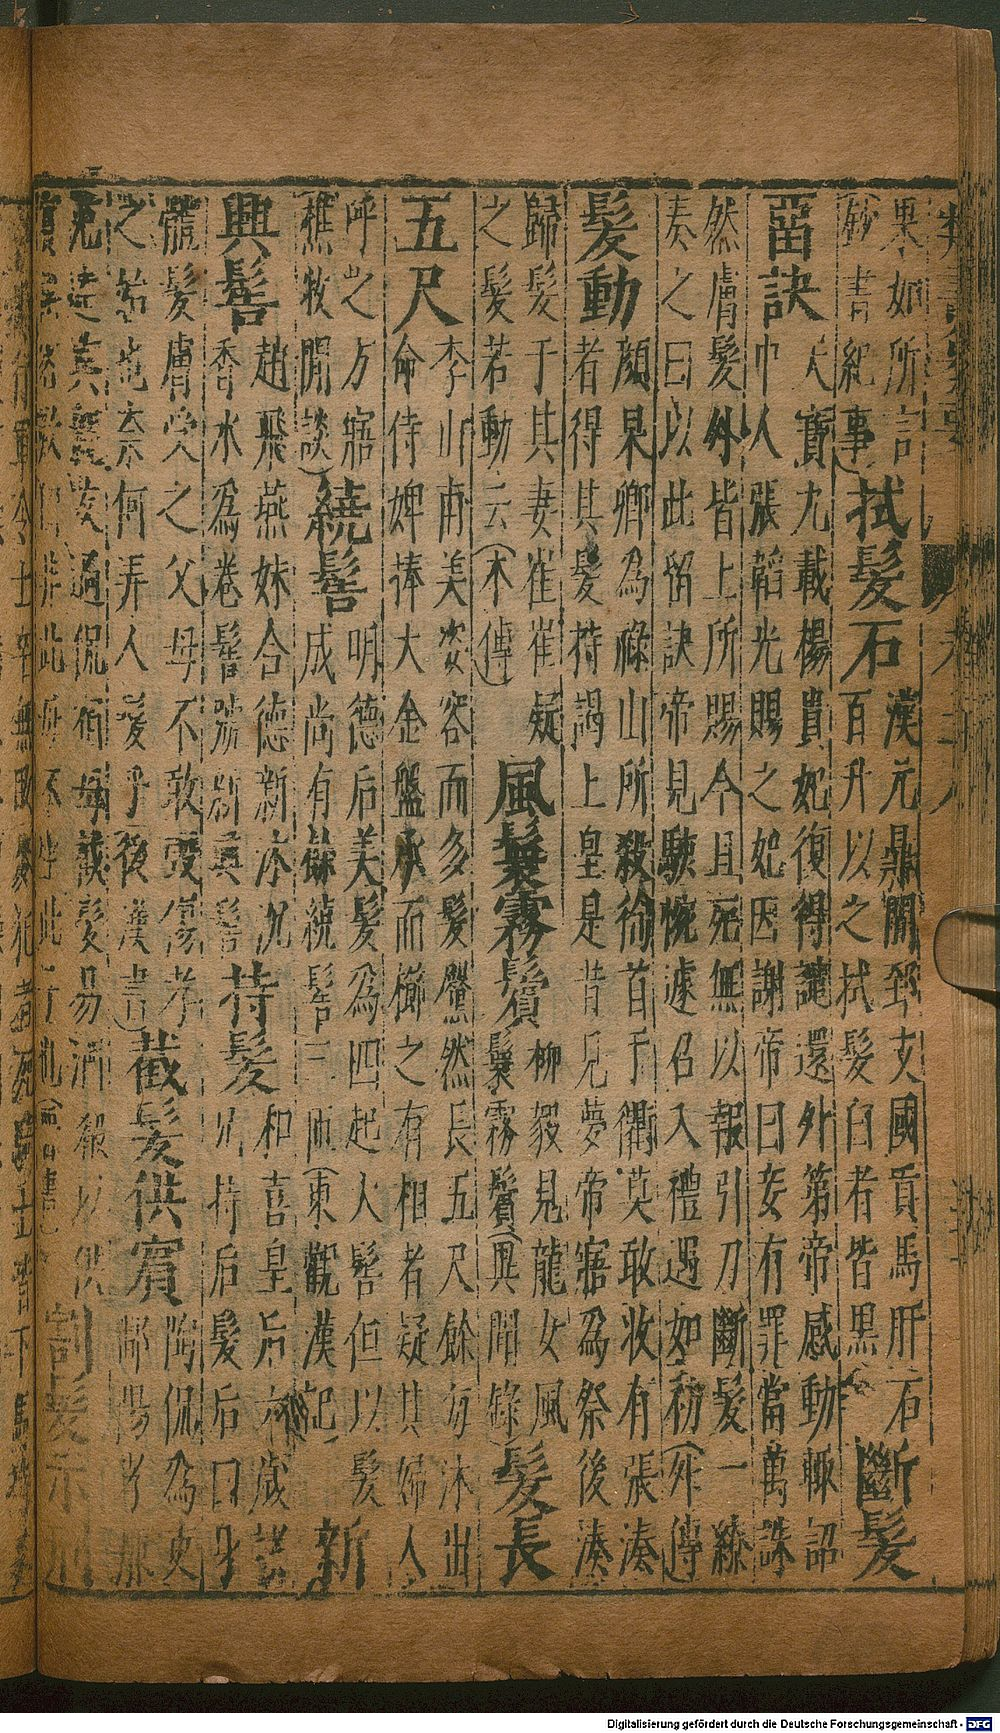 果如所言
(鈔書紀事)
拭髮石
漢元鼎間郅支國貢馬肝石
百升以之拭髮白者皆黑
斷髮
留訣
天寶九載楊貴妃復得譴還外第帝感動輒詔
中人張韜光賜之妃因謝帝曰妾有罪當萬誅
然膚髮外皆上所賜今且死無以報引刀斷髮一繚
奏之曰以此留訣帝見駭惋遽召入禮遇如初(妃傳)
髮動
顏杲卿為祿山所殺徇首于衢莫敢收有張湊
者得其髮持謁上皇是昔見夢帝寤為祭後湊
歸髮于其妻崔崔疑
之髮若動云(本傳)
風鬟霧鬢
柳毅見龍女風
鬟霧鬢(異聞錄)
髮長
五尺
李山甫美姿容而多髮黶然長五尺餘每沐出
命侍婢捧大金盤承而櫛之有相者疑其婦人
呼之方寤
樵牧閒談)
繞髻
明德后美髮為四起大髻但以髮
成尚有餘繞髻三匝(東觀漢記)
新
興髻
趙飛燕妹合德新沐沉
香水為卷髻號新興髻
持髮
和喜皇后六歲諸
兄持后髮后曰身
體髮膚受之父母不敢毀傷孝
之始也奈何弄人髮乎(後漢書)
截髮供賓
陶侃為吏
鄱陽孝廉
過侃侃母截髮易酒殽以供
割髮示刑
Digitalisierung gefördert durch die Deutsche Forschungsgemeinschaft - DFG